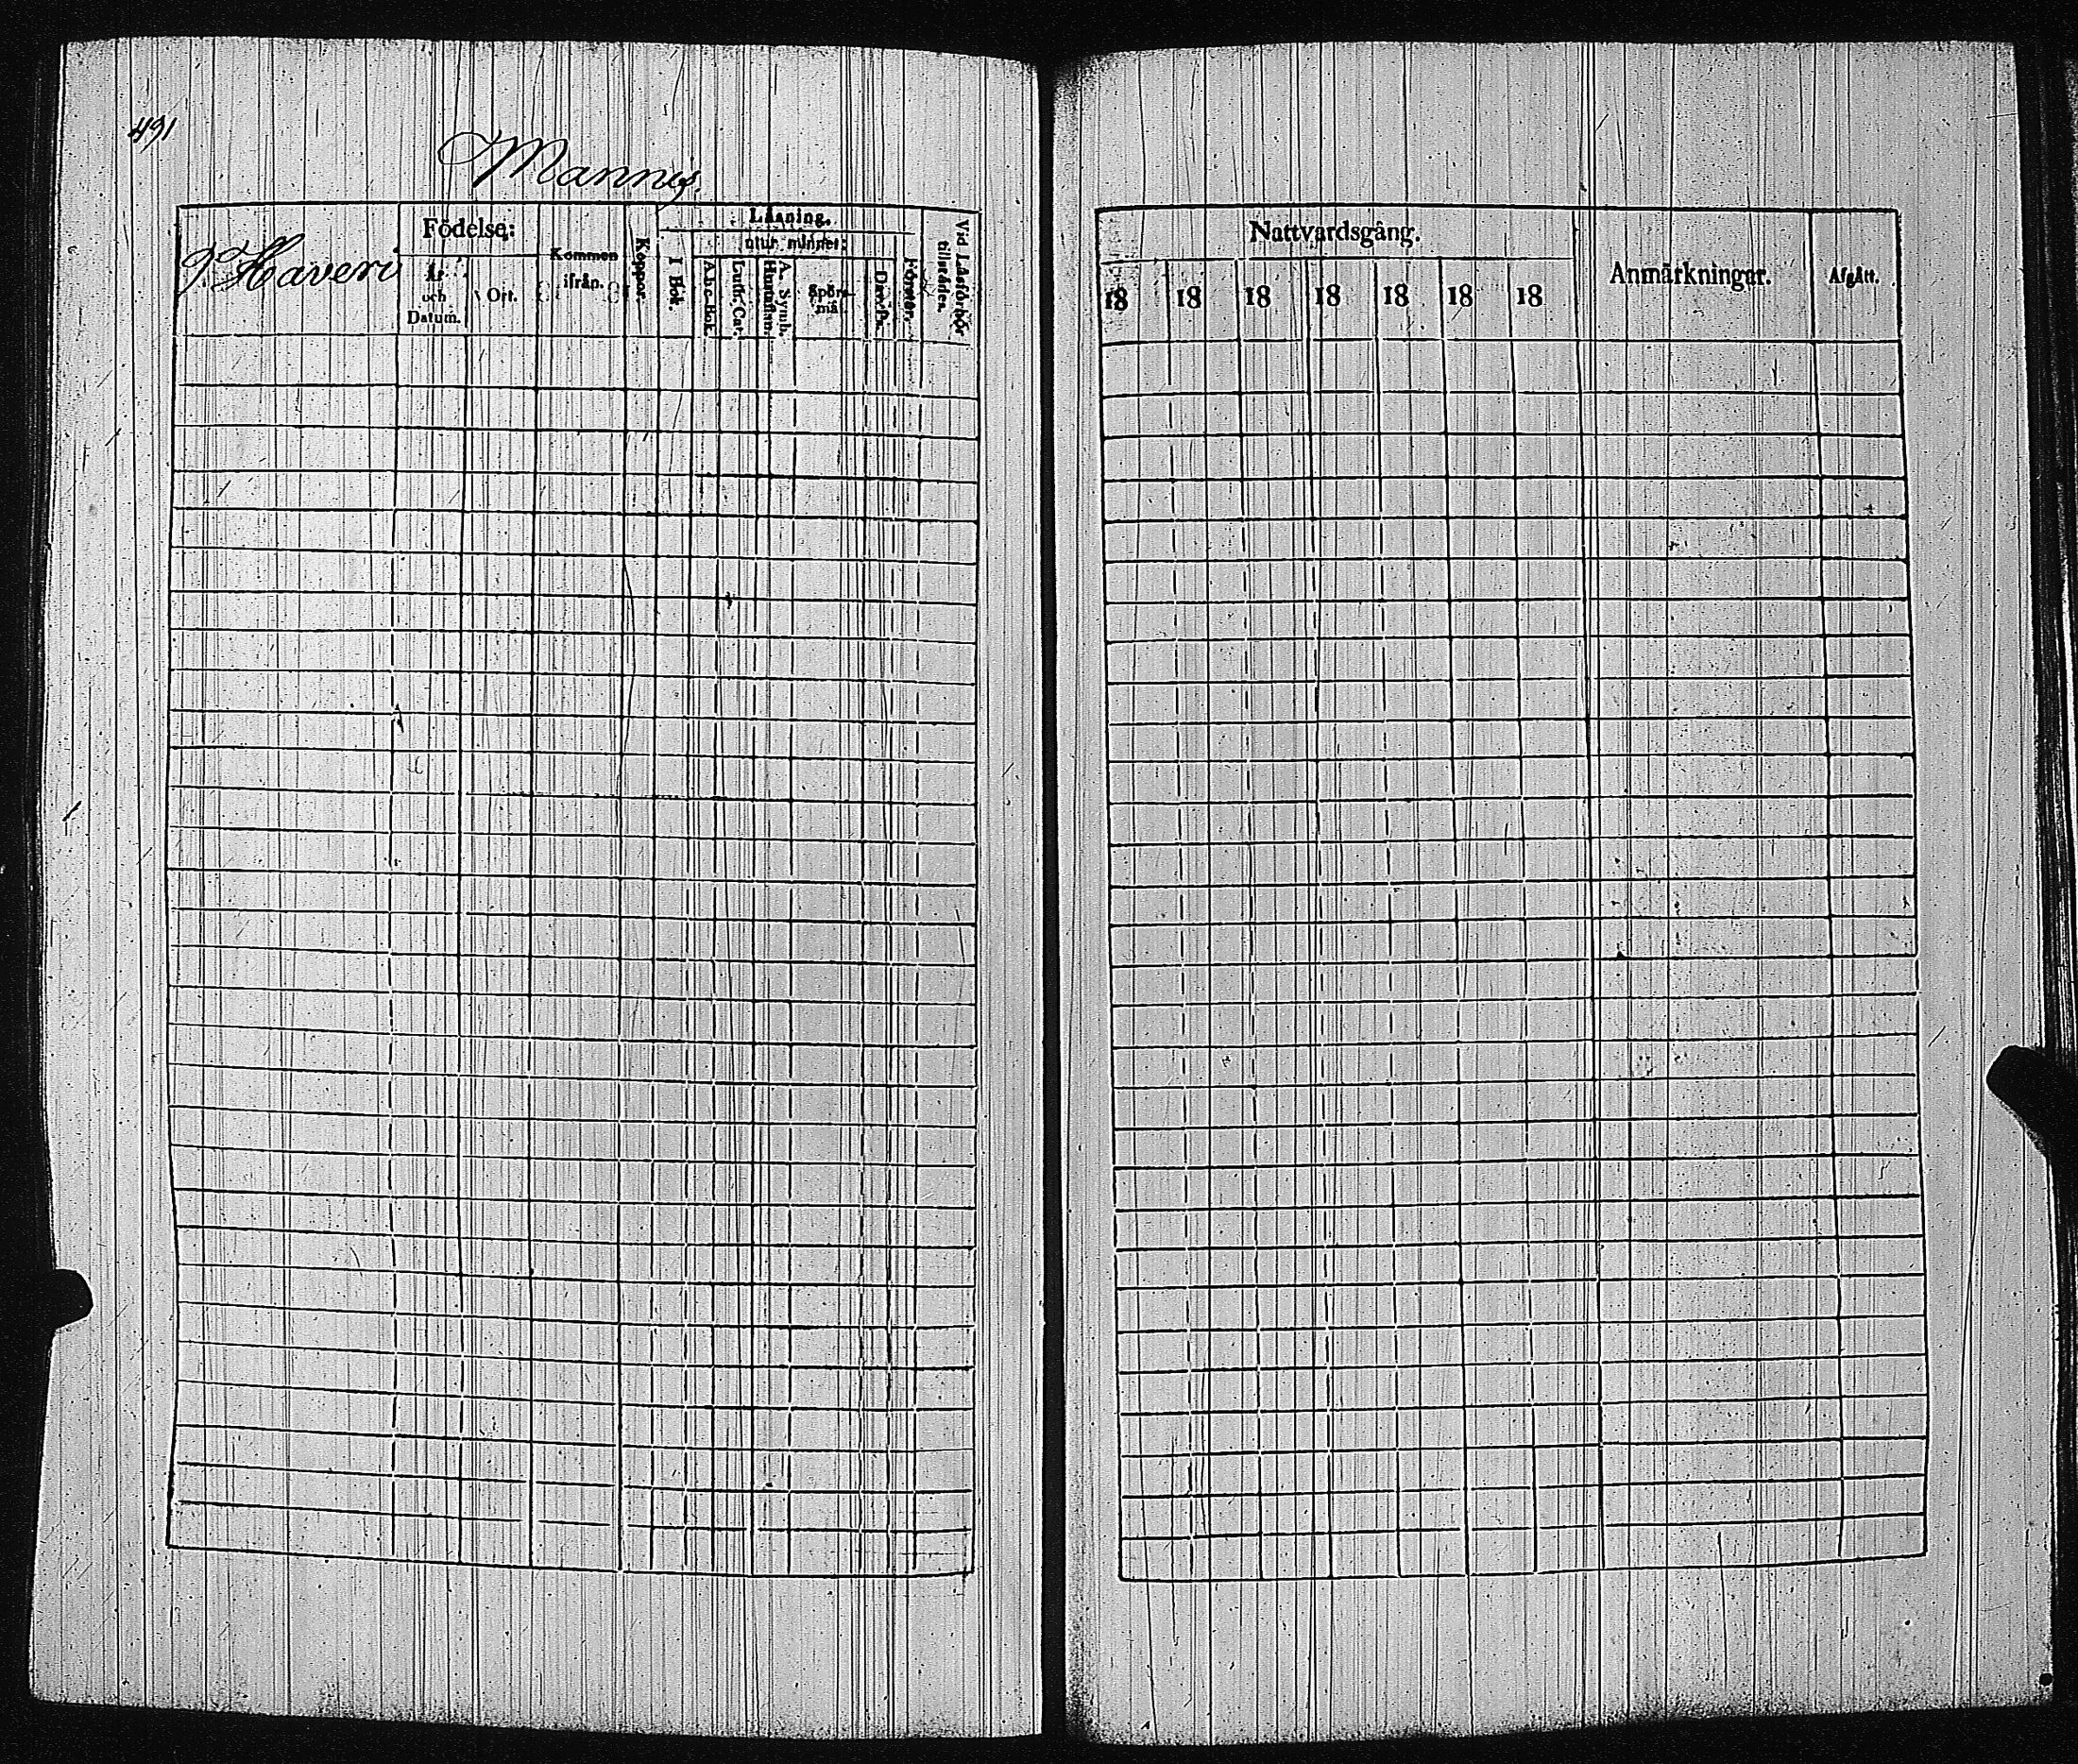 491
Mannes.
9. Haveri
Födelse:
År
och
Datum.
Ort.
Kommen
ifrån.
Koppor.
Läsning.
I Bok.
utur minnet:
A. b. c. Bok.
Luth. Cat.
A. Symb.
Hustaflan.
Spörs-
mål
Dav. Ps.
Förstår.
Vid Läsförhör
tillstädes.
Nattvardsgång.
18 18 18 18 18 18 18
Anmärkningar.
Afgått.